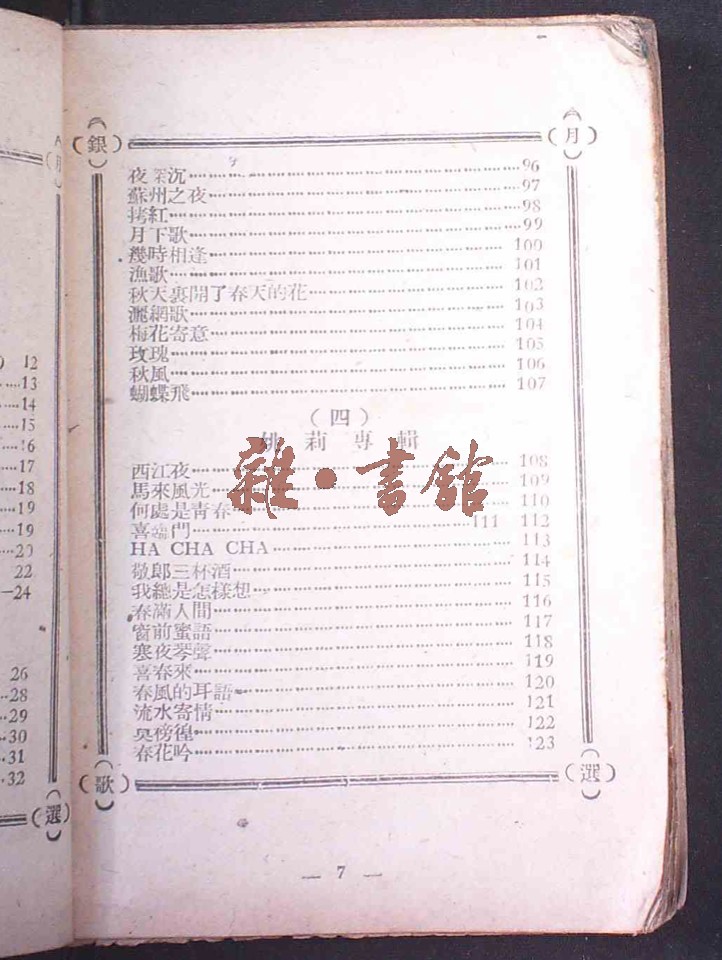 (銀) (月)
夜深沉 96
蘇州之夜 97
拷紅 98
月下歌 99
幾時相逢 100
漁歌 101
秋天裏開了春天的花 102
灑網歌 103
梅花寄意 104
玫瑰 105
秋風 106
蝴蝶飛 107
(四)
姚莉專輯
西江夜 108
馬來風光 109
何處是青春 110
喜臨門 111 112
HA CHA CHA 113
敬郎三杯酒 114
我總是怎樣想 115
春滿人間 116
窗前蜜語 117
寒夜琴聲 118
喜春來 119
春風的耳語 120
流水寄情 121
莫徬徨 122
春花吟 123
(歌) (選)
— 7 —
雜·書館
(月)
12
13
14
15
16
17
18
19
19
20
22
—24
26
28
29
30
31
32
(選)